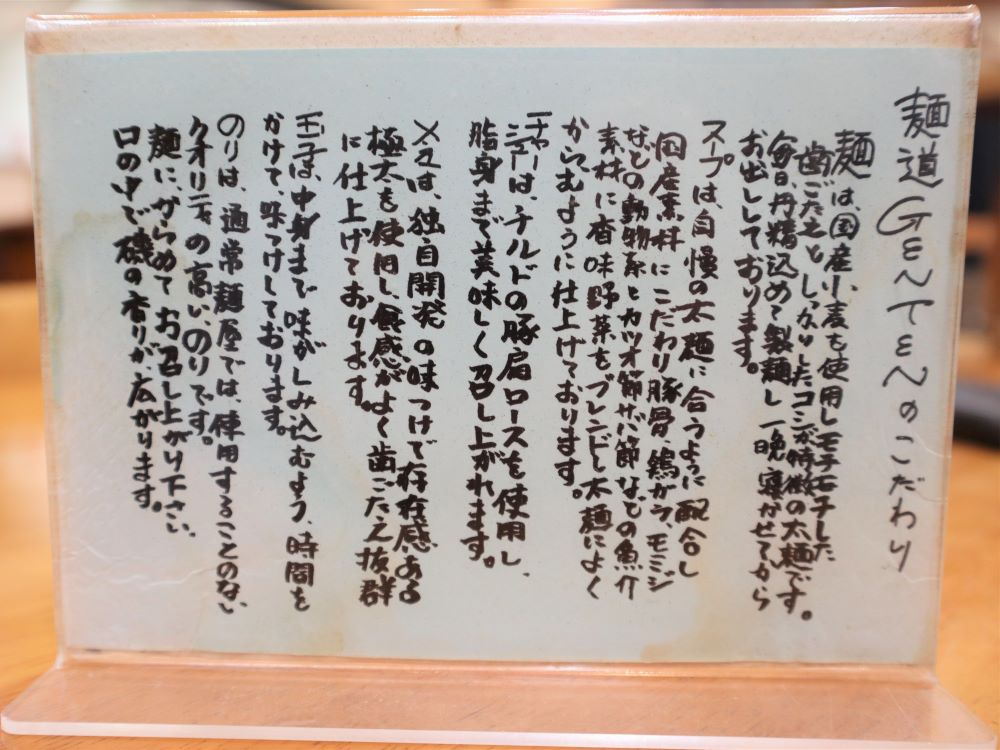 麺道GENTENのこだわり
麺は、国産小麦を使用しモチモチした
歯ごたえと しっかりしたコシが特徴の太麺です。
毎日、丹精込めて製麺し 一晩、寝かせてから
お出ししております。
スープは、自慢の太麺に合うように配合し
国産素材にこだわり豚骨、鶏ガラ、モミジ
などの動物系とカツオ節サバ節などの魚介
素材に香味野菜をブレンドし太麺によく
からむように仕上げております。
チャーシューは、チルドの豚肩ロースを使用し、
脂身まで美味しく召し上がれます。
メンマは、独自開発の味つけで存在感ある
極太を使用し、食感がよく歯ごたえ抜群
に仕上げております。
玉子は、中身まで味がしみ込むよう、時間を
かけて、味つけしております。
のりは、通常麺屋では、使用することのない
クオリティの高い、のりです。
麺に、からめてお召し上がり下さい。
口の中で磯の香りが、広がります。